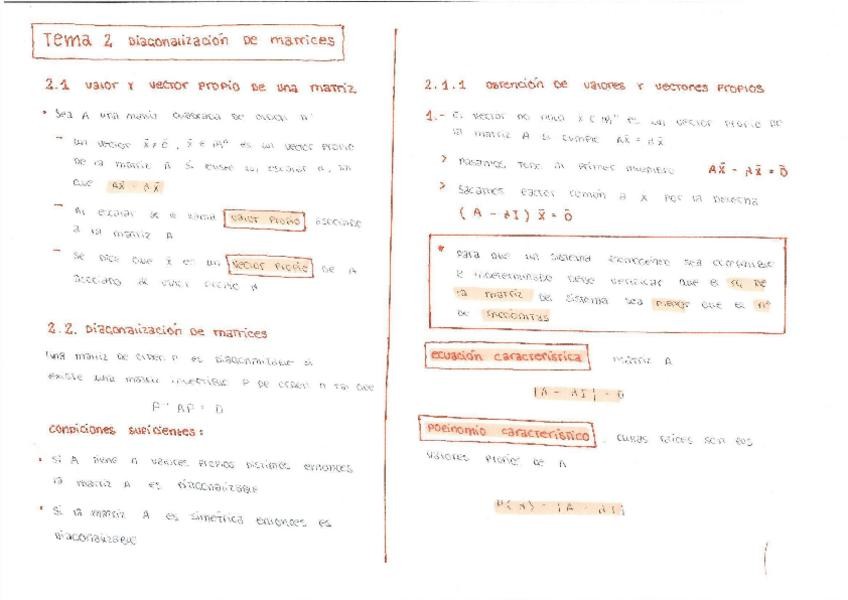 Tema 2 Diagonalización de matrices
2.1 Valor y vector propio de una matriz
• Sea A una matriz cuadrada de orden n
- Un vector x̄ ≠ 0, x̄ ∈ ℝⁿ es un vector propio
de la matriz A si existe un escalar λ, tal
que Ax̄ = λx̄
- Al escalar se le llama valor propio asociado
a la matriz A
- Se dice que x̄ es un vector propio de A
asociado al valor propio λ
2.2. Diagonalización de matrices
Una matriz de orden n es diagonalizable si
existe una matriz invertible P de orden n tal que
P⁻¹ AP = D
Condiciones suficientes:
• Si A tiene n valores propios distintos entonces
la matriz A es diagonalizable
• Si la matriz A es simétrica entonces es
diagonalizable
2.1.1 Obtención de valores y vectores propios
1.- El vector no nulo x ∈ ℝⁿ es un vector propio de
la matriz A si cumple Ax̄ = λx̄
> Pasamos todo al primer miembro Ax̄ - λx̄ = 0̄
> Sacamos factor común a x por la derecha
(A - λI) x̄ = 0̄
* Para que un sistema homogéneo sea compatible
e indeterminado debe verificar que el rg de
la matriz del sistema sea menor que el nº
de incógnitas
Ecuación característica matriz A
|A - λI| = 0
Polinomio característico, cuyas raíces son los
valores propios de A
P(λ) = |A - λI|